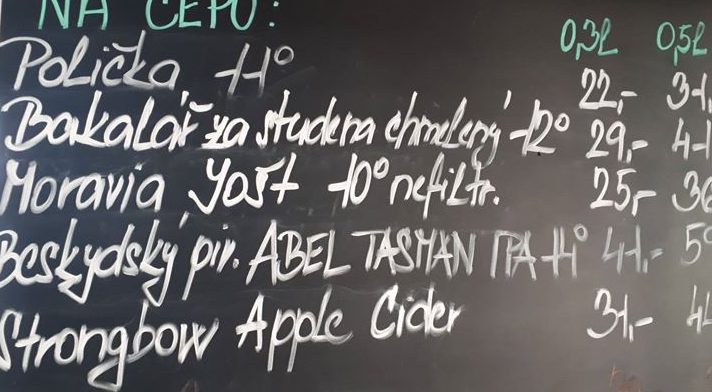 NA ČEPU:
0,3l 0,5l
Polička 11° 22,- 31,
Bakalář za studena chmelený 12° 29,- 41
Moravia Yošt 10° nefiltr. 25,- 36
Beskydský piv. ABEL TASMAN IPA 11° 41.- 5
Strongbow Apple Cider 31,- 44